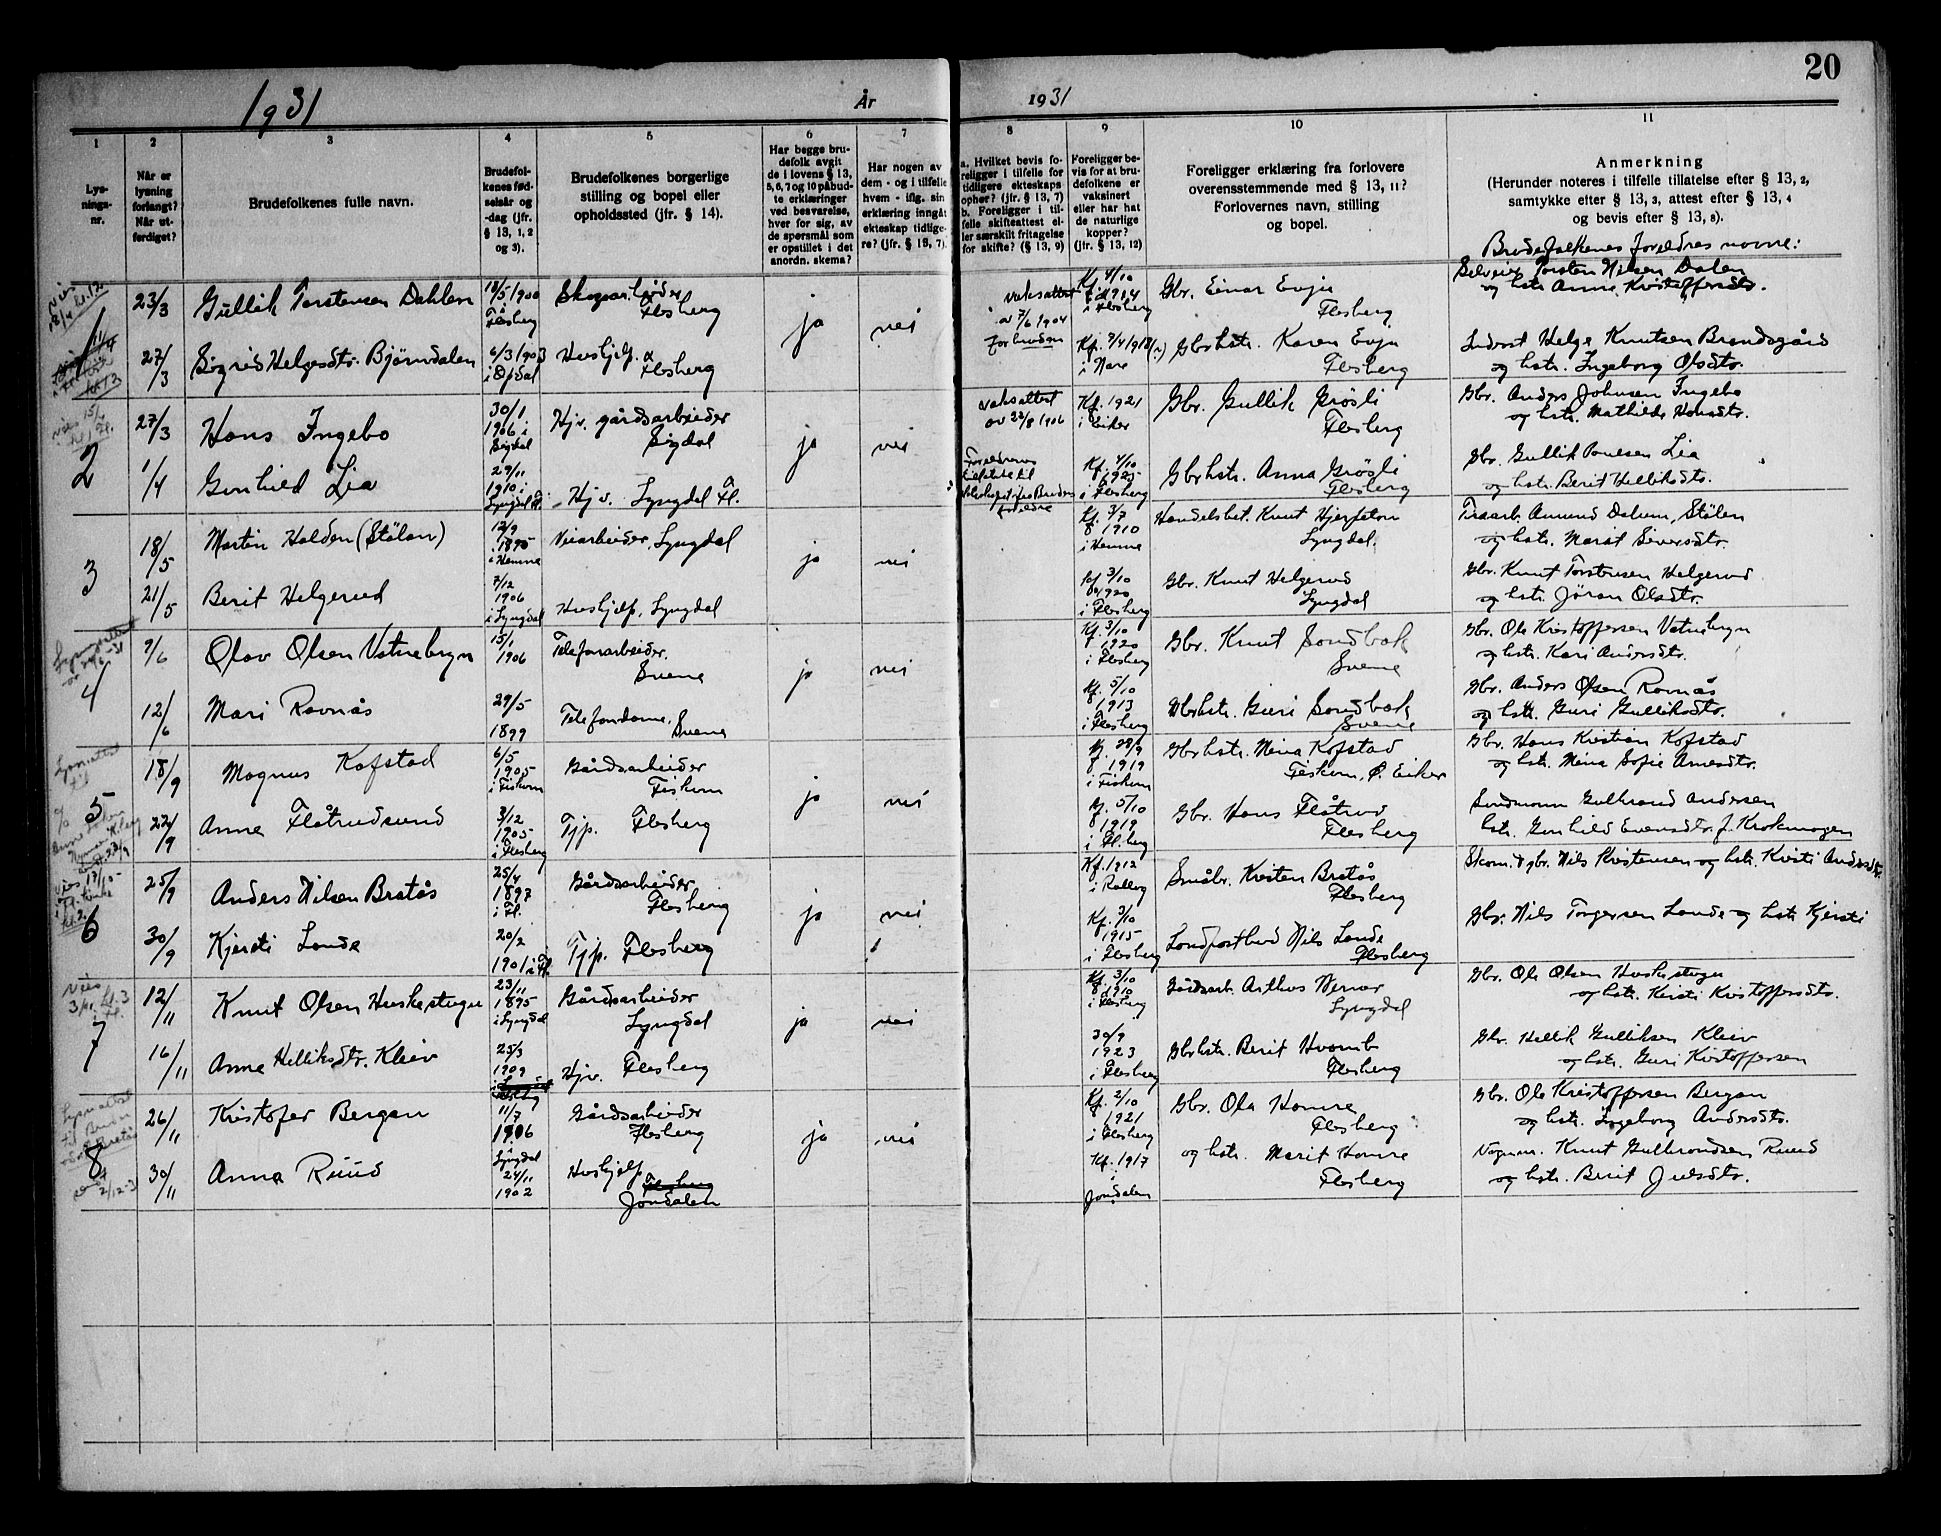 20
1931
År
1931
1
Lys-
nings-
nr.
2
Når er
lysning
forlangt?
Når ut-
ferdiget?
3
Brudefolkenes fulle navn.
4
Brudefol-
kenes fød-
selsår og
-dag (jfr.
§ 13, 1, 2
og 3).
5
Brudefolkenes borgerlige
stilling og bopel eller
opholdssted (jfr. § 14).
6
Har begge bru-
defolk avgit
de i lovens § 13,
5, 6, 7 og 10 påbud-
te erklæringer
ved besvarelse,
hver for sig, av
de spørsmål som
er opstillet i det
anordn. skema?
7
Har nogen av
dem - og i tilfelle
hvem - iflg. sin
erklæring inngått
ekteskap tidlige-
re? (jfr. § 13, 7).
8
a. Hvilket bevis fo-
religger i tilfelle for
tidligere ekteskaps
ophør? (jfr. § 13, 7)
b. Foreligger i til-
felle skifteattest el-
ler særskilt fritagelse
for skifte? (§ 13, 9)
9
Foreligger be-
vis for at bru-
defolkene er
vaksinert
eller har hat
de naturlige
kopper?
(jfr. § 13, 12)
10
Foreligger erklæring fra forlovere
overensstemmende med § 13, 11?
Forlovernes navn, stilling
og bopel.
11
Anmerkning
(Herunder noteres i tilfelle tillatelse efter § 13, 2,
samtykke efter § 13, 3, attest efter § 13, 4
og bevis efter § 13, 8).
Brudefolkenes foreldres navne:
1
23/3
Gullik Torstensen Dahlen
18/5 1900
Flesberg
Skogsarbeider
Flesberg
ja
nei
vaksattest
av 7/6 1904
for bruden
Kf. 4/10
1914
i Flesberg
Gbr. Einar Evju
Flesberg
Selveier Torsten Nilsen Dalen
og hstr. Anne Kristoffersdtr.
27/3
Sigrid Helgesdtr. Bjørndalen
6/3 1903
i Opdal
Hushjelp
Flesberg
Kf. 7/4 1918
i Nore
Gbrhstr. Karen Evju
Flesberg
Inderst Helge Knutsen Brandsgård
og hstr. Ingeborg Olsdtr.
2
27/3
Hans Ingebo
30/1
1906 i
Sigdal
Hjv. gårdsarbeider
Sigdal
ja
nei
vaksattest
av 22/8 1906
Kf. 1921
i Eiker
Gbr. Gullik Grøsli
Flesberg
Gbr. Anders Johnsen Ingebo
og hstr. Mathilde Hansdtr.
1/4
Gunhild Lia
29/11
1910 i
Lyngdal Fl.
Hjv. Lyngdal Fl.
Kf. 4/10
1925
i Flesberg
Gbrhstr. Anna Grøsli
Flesberg
Gbr. Gullik Paulsen Lia
og hstr. Berit Helliksdtr.
3
18/5
Martin Halden (Stølan)
12/9
1895
i Hemne
Veiarbeider, Lyngdal
ja
nei
Kf. 3/7
1910
i Hemne
Handelsbet. Knut Hjerpeton
Lyngdal.
Amund Dalum, Stølen
og hstr. Marit Siversdtr.
21/5
Berit Helgerud
7/12
1906
i Lyngdal
Hushjelp, Lyngdal
Kf. 3/10
1920
i Flesberg
Gbr. Knut Helgerud
Lyngdal
Gbr. Knut Torstensen Helgerud
og hstr. Jøran Olsdtr.
4
9/6
Olav Olsen Vatnebryn
15/1
1906
Telefonarbeider.
Svene
ja
nei
Kf. 3/10
1920
i Flesberg
Gbr. Knut Sandbæk
Svene
Gbr. Ole Kristoffersen Vatnebryn
og hstr. Kari Andersdtr.
12/6
Mari Ravnås
29/5
1899
Telefondame, Svene
Kf. 5/10
1913
i Flesberg
Gbrhstr. Guri Sandbæk
Svene
Gbr. Anders Olsen Ravnås
og hstr. Guri Gulliksdtr.
5
18/9
Magnus Kofstad
6/5
1905
i Fiskum
Gårdsarbeider
Fiskum
ja
nei
Kf. 28/9
1919
i Fiskum
Gbrhstr. Nina Kofstad
Fiskum, Ø. Eiker
Gbr. Hans Kristian Kofstad
og hstr. Nina Sofie Arnesdtr.
22/9
Anne Flåtrudsund
3/12
1905
i Flesberg
Tjp. Flesberg
Kf. 5/10
1919
i Fl.berg
Gbr. Hans Flåtrud
Flesberg
Sundmann Gulbrand Andersen
hstr. Gunhild Evensdtr. f. Krokmogen
6
25/9
Anders Nilsen Bratås
25/4
1897
i Fl.
Gårdsarbeider
Flesberg
ja
nei
Kf. 1912
i Rollag
Småbr. Kristen Bratås
Flesberg
Skom. & gbr. Nils Kristensen og hstr. Kristi Andersdtr.
30/9
Kjersti Lande
20/2
1901 i Fl.
Tjp. Flesberg
Kf. 3/10
1915
i Flesberg
Landpostbud Nils Lande
Flesberg
Gbr. Nils Torgersen Lande og hstr. Kjersti
7
12/11
Knut Olsen Huskestugu
23/11
1895
i Lyngdal
Gårdsarbeider
Lyngdal
ja
nei
Kf. 3/10
1910
i Flesberg
Gårdsarb. Arthus Wernar
Lyngdal
Gbr. Ole Olsen Huskestugu
og hstr. Kirsti Kristoffersdtr.
16/11
Anne Helliksdtr. Kleiv
25/3
1909
Hjv. Flesberg
30/9
1923
i Flesberg
Gbrhstr. Berit Hvamb
Flesberg
Gbr. Hellik Gulliksen Kleiv
og hstr. Guri Kristoffersen
8
26/11
Kristofer Bergan
11/7
1906
Lyngdal
Gårdsarbeider
Flesberg
ja
nei
Kf. 2/10
1921
i Flesberg
Gbr. Ole Homre
Flesberg
Gbr. Ole Kristoffersen Bergan
og hstr. Ingeborg Andersdtr.
30/11
Anna Ruud
24/11
1902
Hushjelp
Flesberg
Jondalen
Kf. 1917
i
Jondalen
og hstr. Marit Homre
Flesberg
Vognm. Knut Gulbrandsen Ruud
og hstr. Berit Julsdtr.